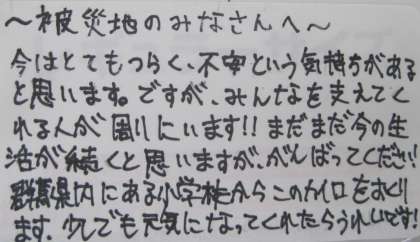 〜被災地のみなさんへ〜
今はとてもつらく、不安という気持ちがある
と思います。ですが、みんなを支えてく
れる人が周りにいます!!まだまだ今の生
活が続くと思いますが、がんばってください!
群馬県内にある小学校からこのカイロをおくり
ます。少しでも元気になってくれたらうれしいです!